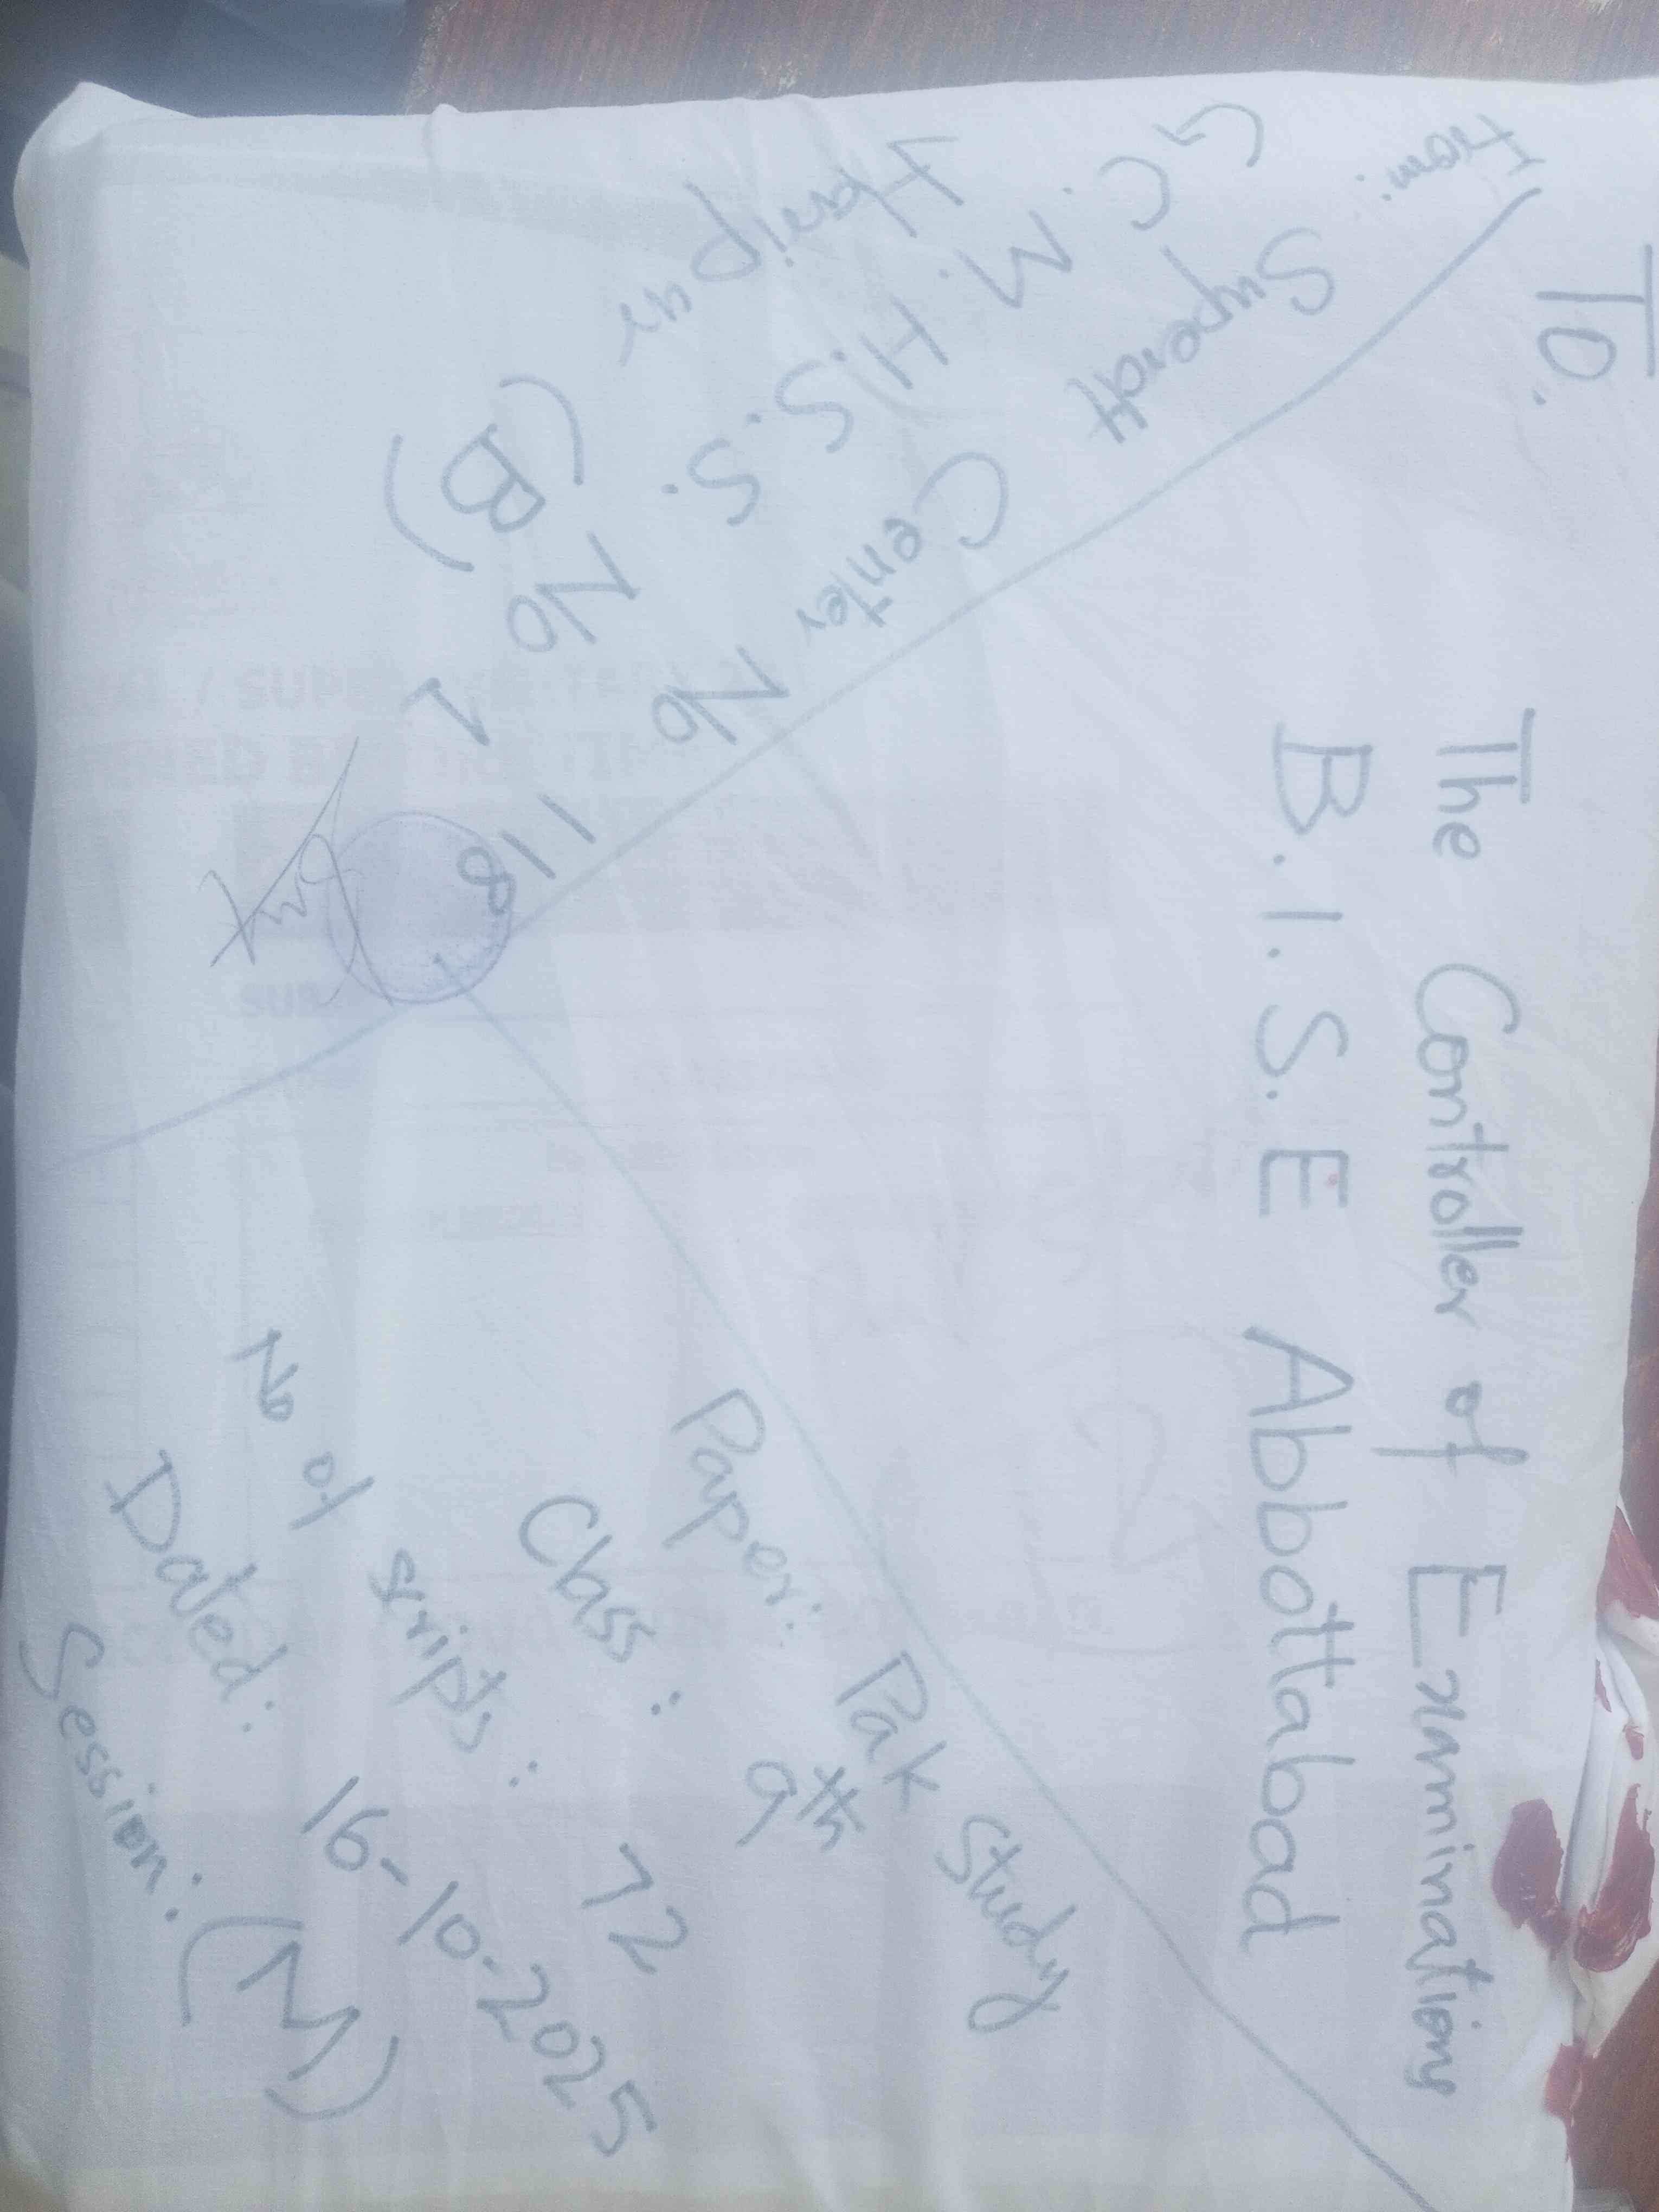 To.
The Controller of Examinations
B.I.S.E Abbottabad
From:
Supendtt Center No 118
G.C.M.H.S.S. No 1
Haripur (B)
Paper: Pak Study
Class: 9th
No of scripts: 72
Dated: 16-10-2025
Session: (M)